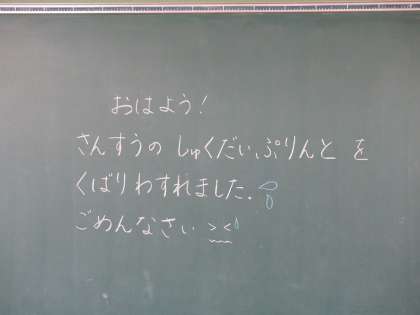 おはよう!
さんすうの しゅくだい、ぷりんと を
くばりわすれました。
ごめんなさい ><